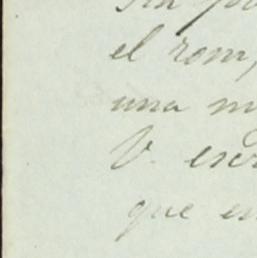 el rom,
una m
V. escr
que en